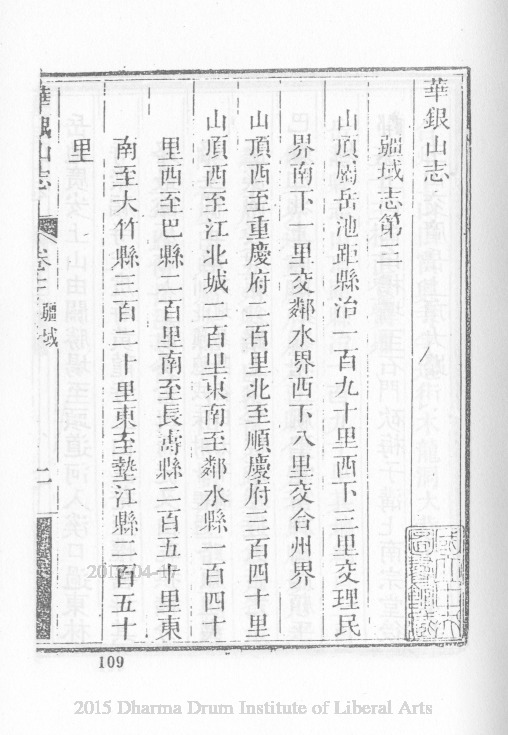 華銀山志
疆域志第三
山頂屬岳池距縣治一百九十里西下三里交理民
界南下一里交鄰水界西下八里交合州界
山頂西至重慶府二百里北至順慶府三百四十里
山頂西至江北城二百里東南至鄰水縣一百四十
里西至巴縣二百里南至長壽縣二百五十里東
南至大竹縣三百二十里東至墊江縣二百五十
里
華銀山志 卷十 疆域 一
109
2015 Dharma Drum Institute of Liberal Arts